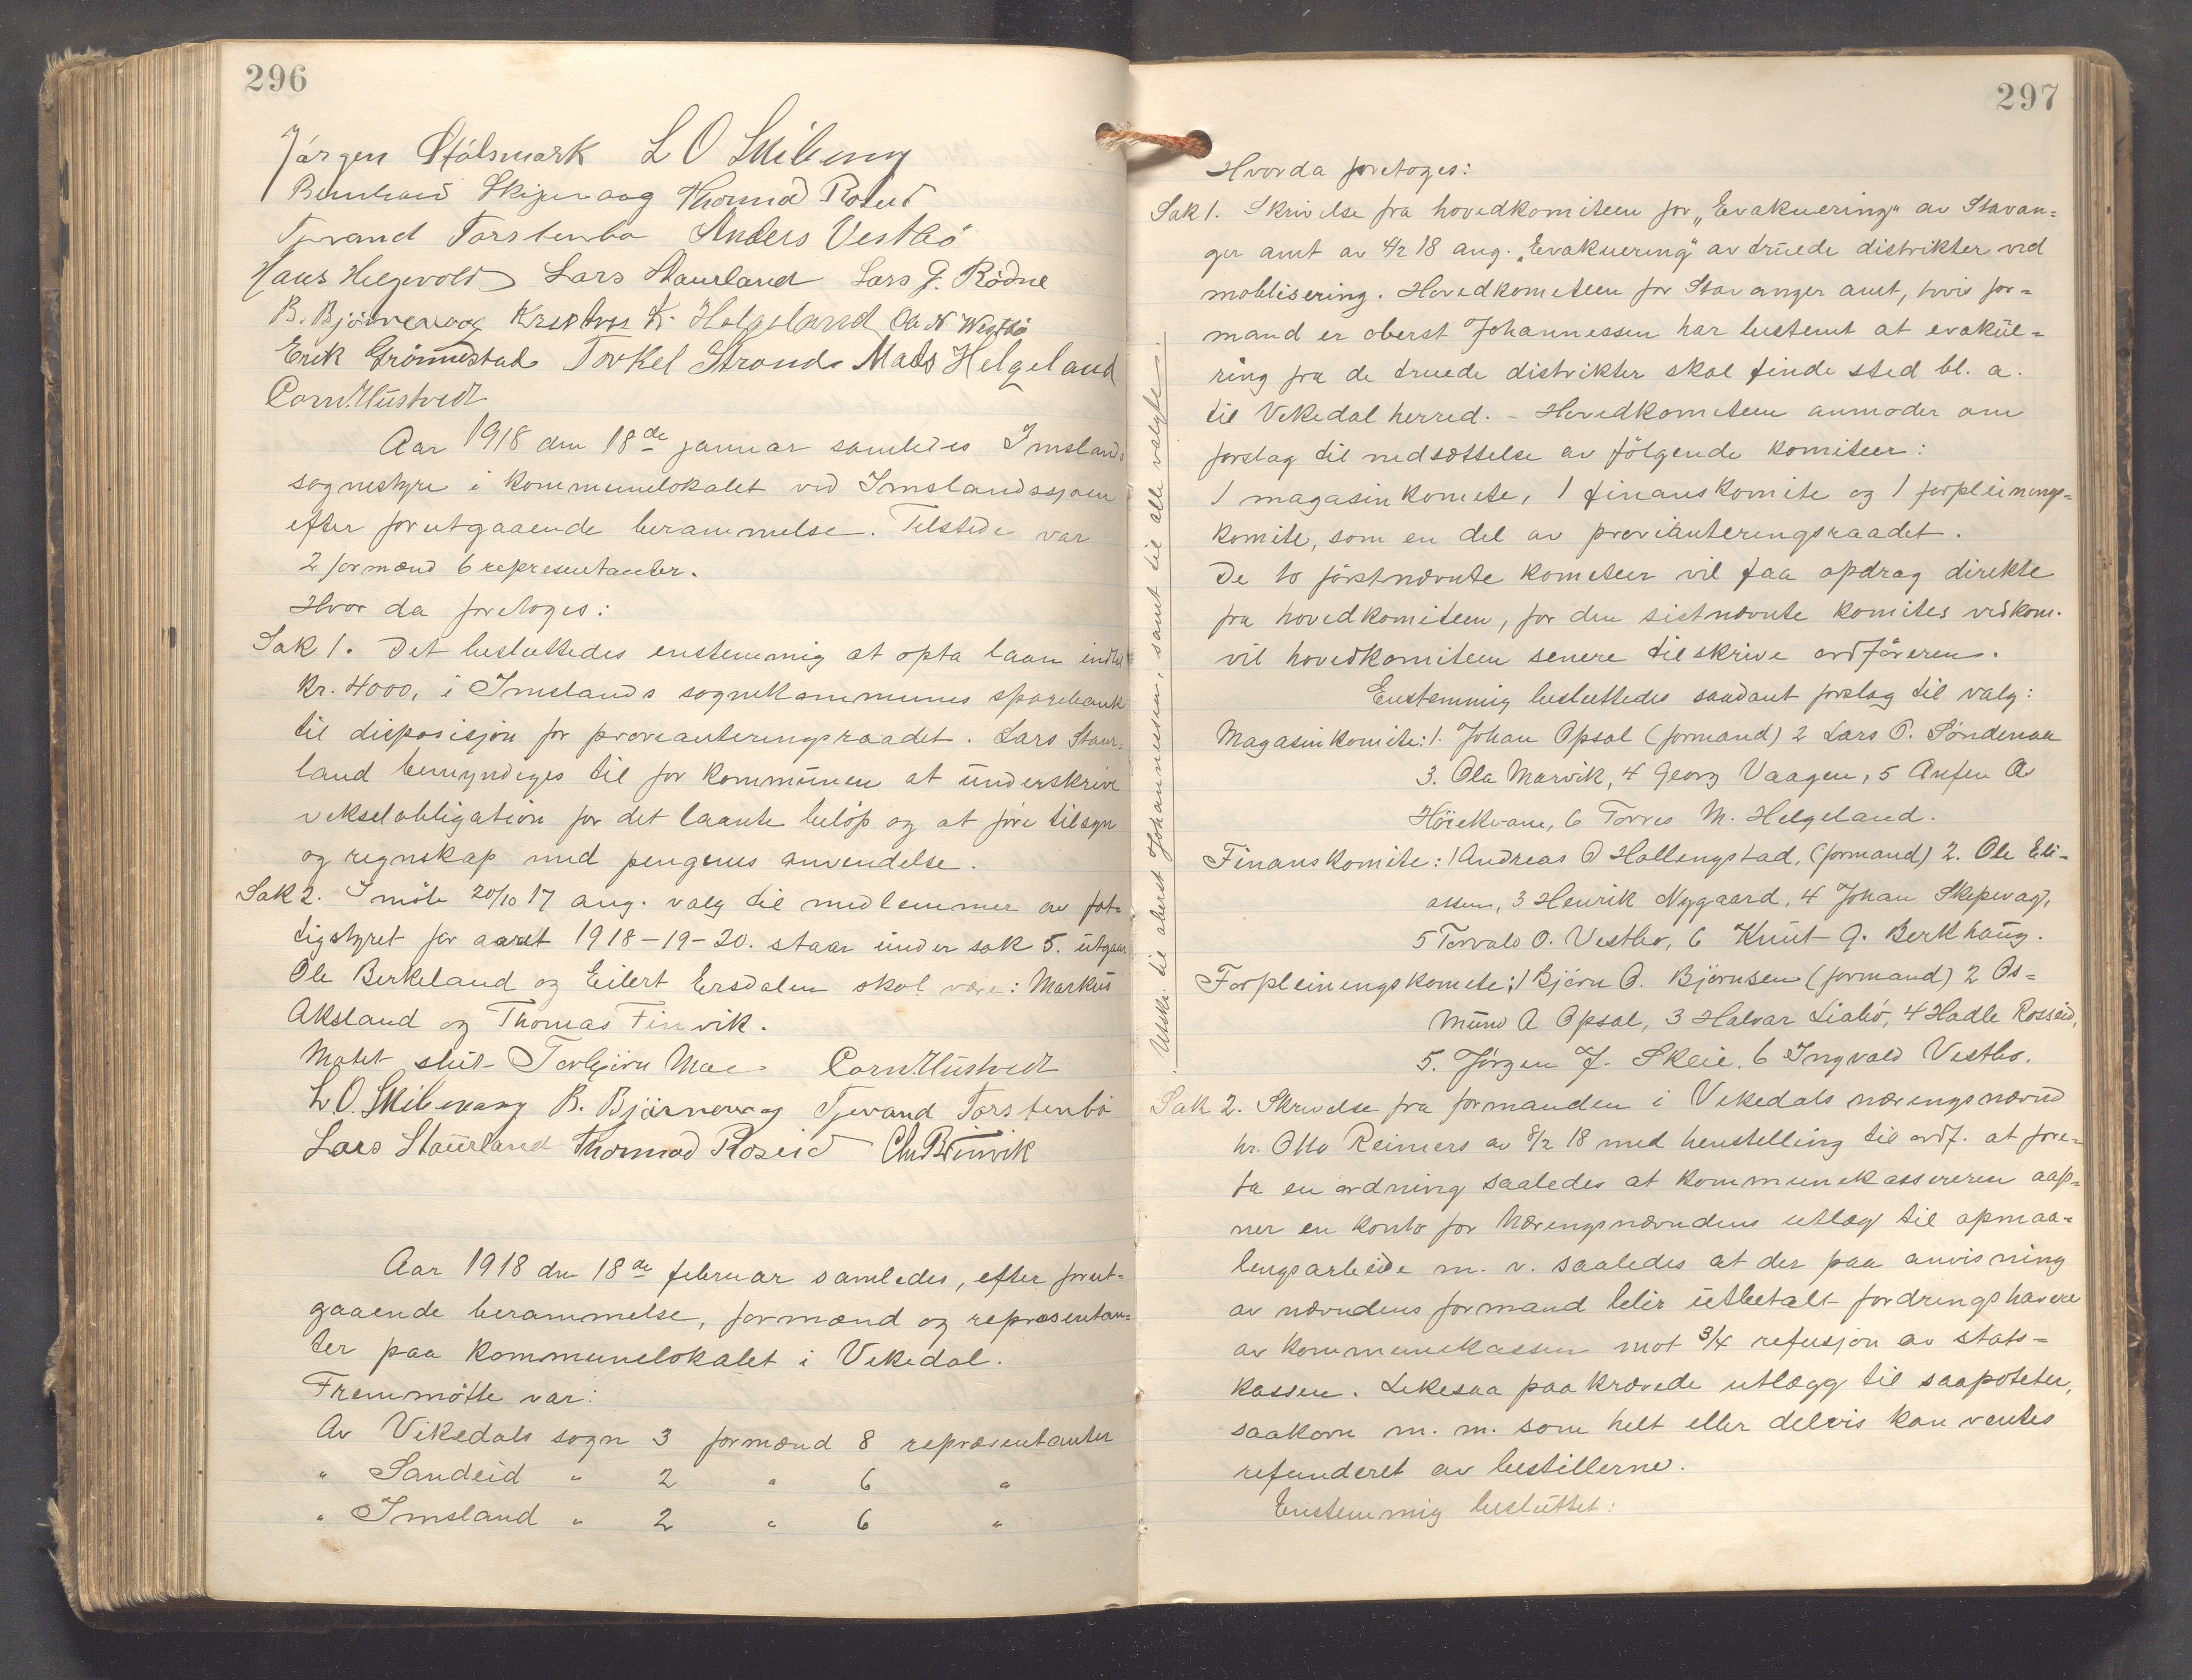 296
Jörgen Stålsmark L O Skibenvaag
Bernhard Skipevaag Thormod Roseid
Tjerand Torstenbö Anders Vestbö
Hans Helgevold Lars Staurland Lars G. Rödne
B. Björnevaag Kristen K. Helgeland Ole N Westbö
Erik Grönnestad Torkel Strand Mads Helgeland
Corn. Hustvedt
Aar 1918 den 18de januar samledes Imslands
sognestyre i kommunelokalet ved Imslandssjøen
efter forutgaaende berammelse. Tilstede var
2 formænd 6 representanter.
Hvor da foretoges:
Sak 1. Det besluttedes enstemmig at opta laan indtil
kr. 4000, i Imslands sognekommunes sparebank
til disposisjon for provianteringsraadet. Lars Staur-
land bemyndiges til for kommunen at underskrive
vekselobligation for det laante beløp og at føre tilsyn
og regnskap med pengenes anvendelse.
Sak 2. I møte 20/10 17 ang. valg til medlemmer av fat-
tigstyret for aaret 1918-19-20. staar under sak 5. utgaar
Ole Berkeland og Eilert Ersdalen skal være: Markus
Aksland og Thomas Finvik.
Møtet slut Torbjörn Moe Corn. Hustvedt
L O. Skibenvaag B. Björnevaag Tjerand Torstenbö
Lars Staurland Thormod Roseid Chr Brimvik
Aar 1918 den 18de februar samledes, efter forut-
gaaende berammelse, formænd og repræsentan-
ter paa kommunelokalet i Vikedal.
Fremmøtte var:
Av Vikedals sogn 3 formænd 8 repræsentanter
" Sandeid " 2 " 6 "
" Imsland " 2 " 6 "
297
Hvorda foretoges:
Sak 1. Skrivelse fra hovedkomiteen for „Evakuering" av Stavan=
ger amt av 4/2 18 ang. „Evakuering" av truede distrikter ved
moblisering. Hovedkomiteen for Stavanger amt, hvis for=
mand er oberst Johannessen har bestemt at evakue=
ring fra de truede distrikter skal finde sted bl. a.
til Vikedal herred. - Hovedkomiteen anmoder om
forslag til nedsættelse av følgende komiteer:
1 magasinkomite, 1 finanskomite og 1 forpleinings=
komite, som en del av provianteringsraadet.
De to førstnævnte komiteer vil faa opdrag direkte
fra hovedkomiteen, for den sistnævnte komites vedkom.
vil hovedkomiteen senere tilskrive ordføreren.
Enstemmig besluttedes saadant forslag til valg:
Magasinkomite: 1. Johan Opsal (formand) 2 Lars P. Søndenaa
3. Ola Marvik, 4 Georg Vaagen, 5 Anfin A
Høiekvam, 6 Torres M. Helgeland.
Finanskomite: 1 Andreas O Hallingstad, (formand) 2. Ole Eli-
assen, 3 Henrik Nygaard, 4 Johan Skipevag,
5 Torvald O. Vestbø, 6 Knut G. Berkhaug.
Forpleiningskomite: 1 Bjørn O. Bjørnsen (formand) 2 As=
mund A Opsal, 3 Halvar Liabø, 4 Hadle Rosseid,
5. Jørgen J. Skeie, 6 Ingvald Vestbø.
Utskr. til oberst Johannessen, samt til alle valgte.
Sak 2. Skrivelse fra formanden i Vikedals næringsnævnd
hr. Otto Reimers av 8/2 18 med henstilling til ordf. at fore-
ta en ordning saaledes at kommunekassereren aap=
ner en konto for Næringsnævndens utlæg til opmaa=
lingsarbeide m. v. saaledes at der paa anvisning
av nævndens formand blir utbetalt fordringshavere
av kommunekassen mot 3/4 refusjon av stats=
kassen. Likesaa paakrævede utlægg til saapoteter,
saakorn m. m. som helt eller delvis kan ventes
refunderet av bestillerne.
Enstemmig besluttet: